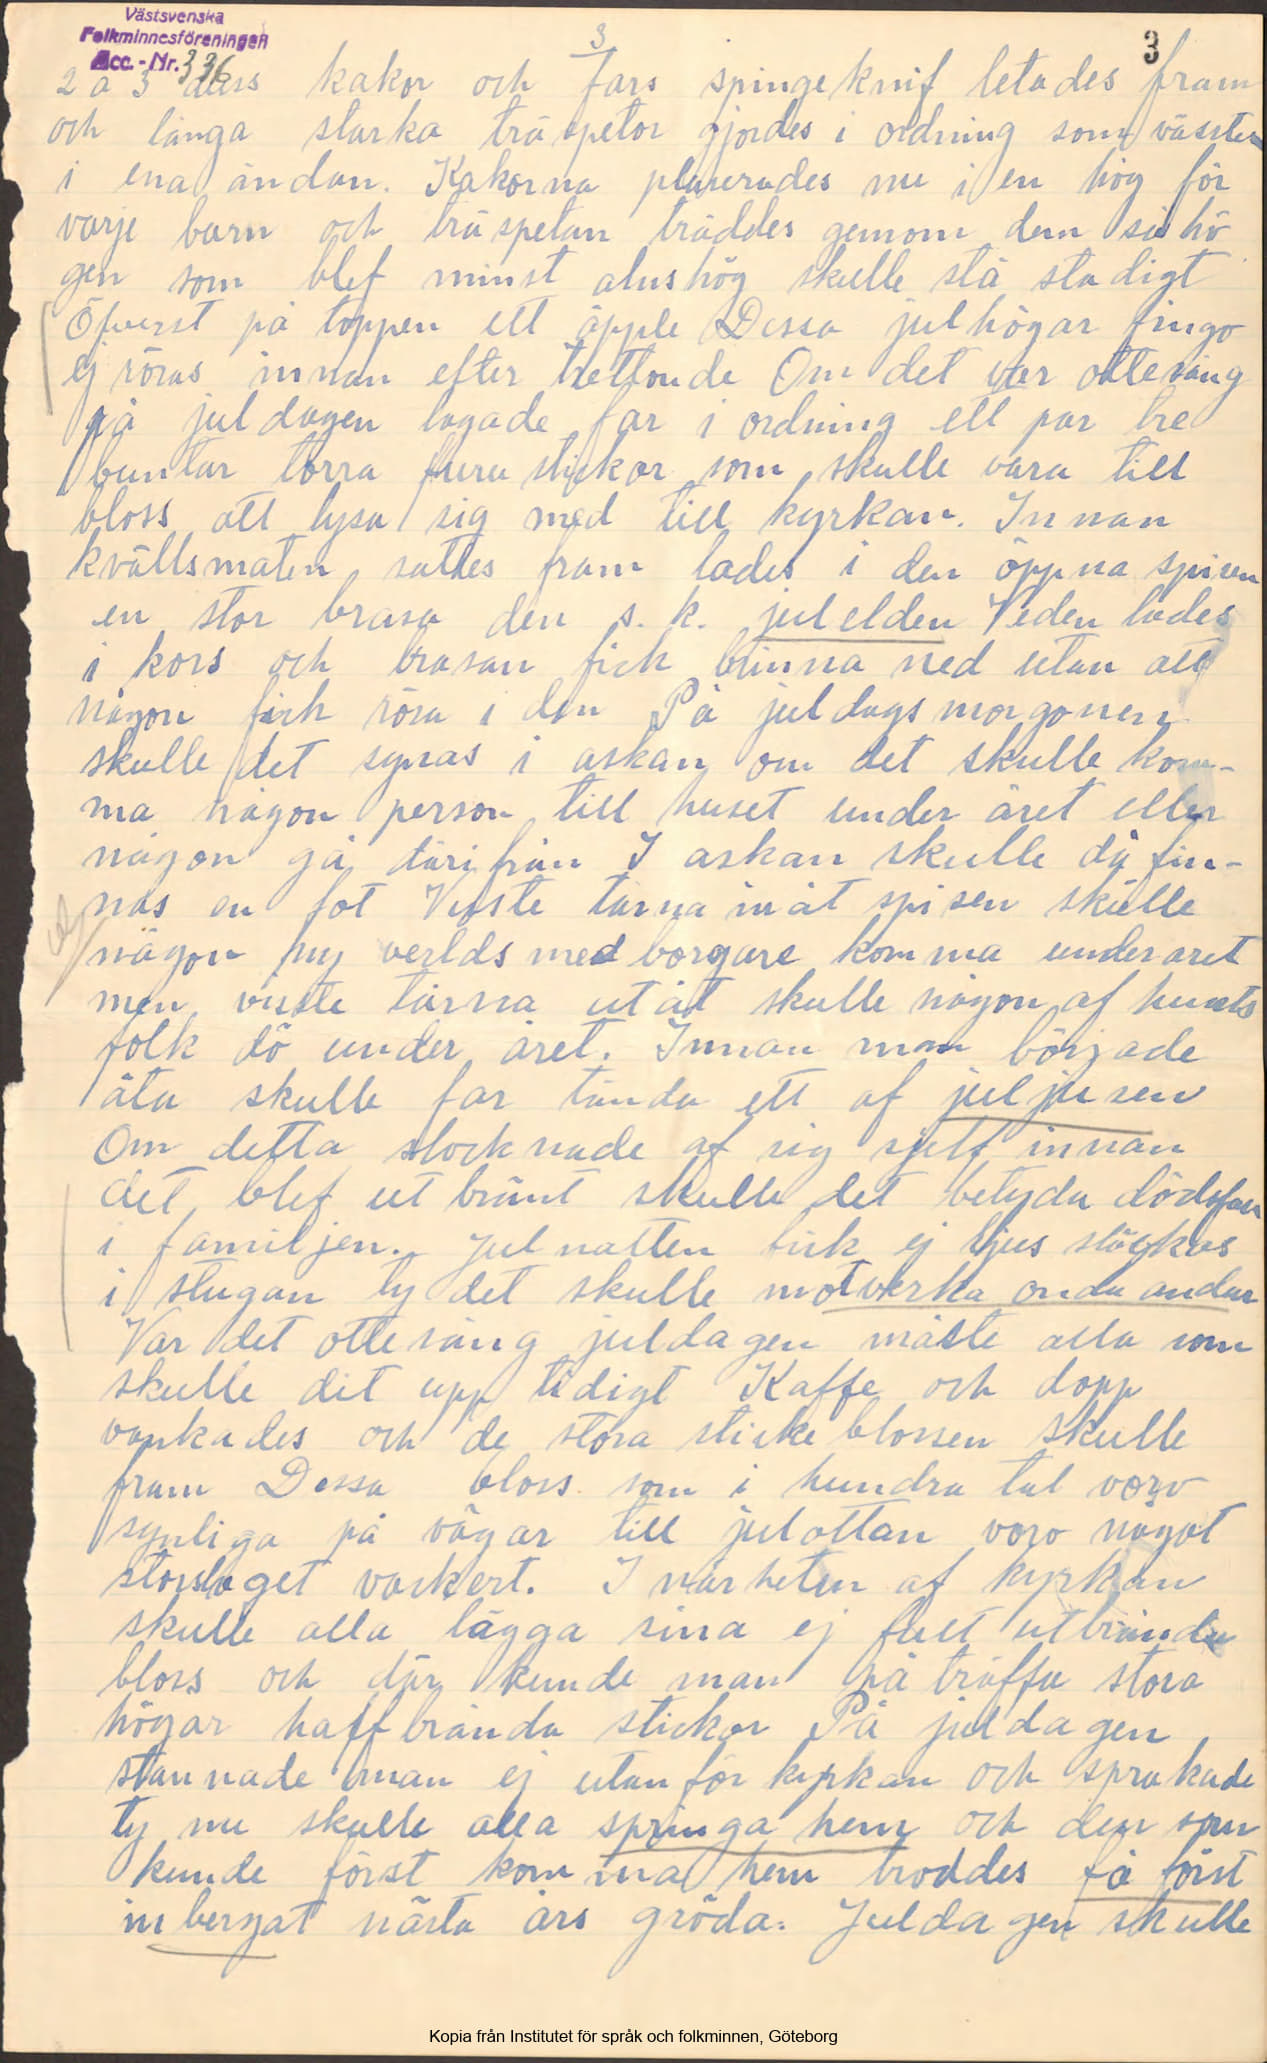 Västsvenska
Folkminnesföreningen
Acc.-Nr. 336
3
3
2 a 3 kakor och fars spingeknif letades fram
och långa starka träspetor gjordes i ordning som vässtes
i ena ändan. Kakorna plaserades nu i en hög för
varje barn och träspetan träddes genom dem så hö
gen som blef minst alnshög skulle stå stadigt
Öfverst på toppen ett äpple Dessa julhögar fingo
ej röras innan efter trettonde Om det var ottesång
på juldagen lagade far i ordning ett par tre
buntar torra furu stickor som skulle vara till
bloss att lysa sig med till kyrkan. Innan
kvällsmaten sattes fram lades i den öppna spisen
en stor brasa den s. k. julelden Veden lades
i kors och brasan fick brinna ned utan att
någon fick röra i den På juldagsmorgonen
skulle det synas i askan om det skulle kom-
ma någon person till huset under året eller
någon gå därifrån I askan skulle då fin-
nas en fot Visste tårna inåt spisen skulle
någon ny verldsmedborgare komma under året
men visste tårna utåt skulle någon af husets
folk dö under året. Innan man började
äta skulle far tända ett af juljusen
Om detta slocknade af sig sjelf innan
det blef utbränt skulle det betyda dödsfall
i familjen. Julnatten fick ej ljus släckas
i stugan ty det skulle motverka onda andar
Var det ottesång juldagen måste alla som
skulle dit upp tidigt Kaffe och dopp
vankades och de stora sticke blossen skulle
fram Dessa bloss som i hundra tal voro
synliga på vägar till julottan voro något
storslaget vackert. I närheten af kyrkan
skulle alla lägga sina ej fult utbrända
bloss och där kunde man på träffa stora
högar halfbrända stickor På juldagen
stannade man ej utanför kyrkan och språkade
ty nu skulle alla springa hem och den som
kunde först komma hem troddes få först
inbergat nästa års gröda. Juldagen skulle
Kopia från Institutet för språk och folkminnen, Göteborg